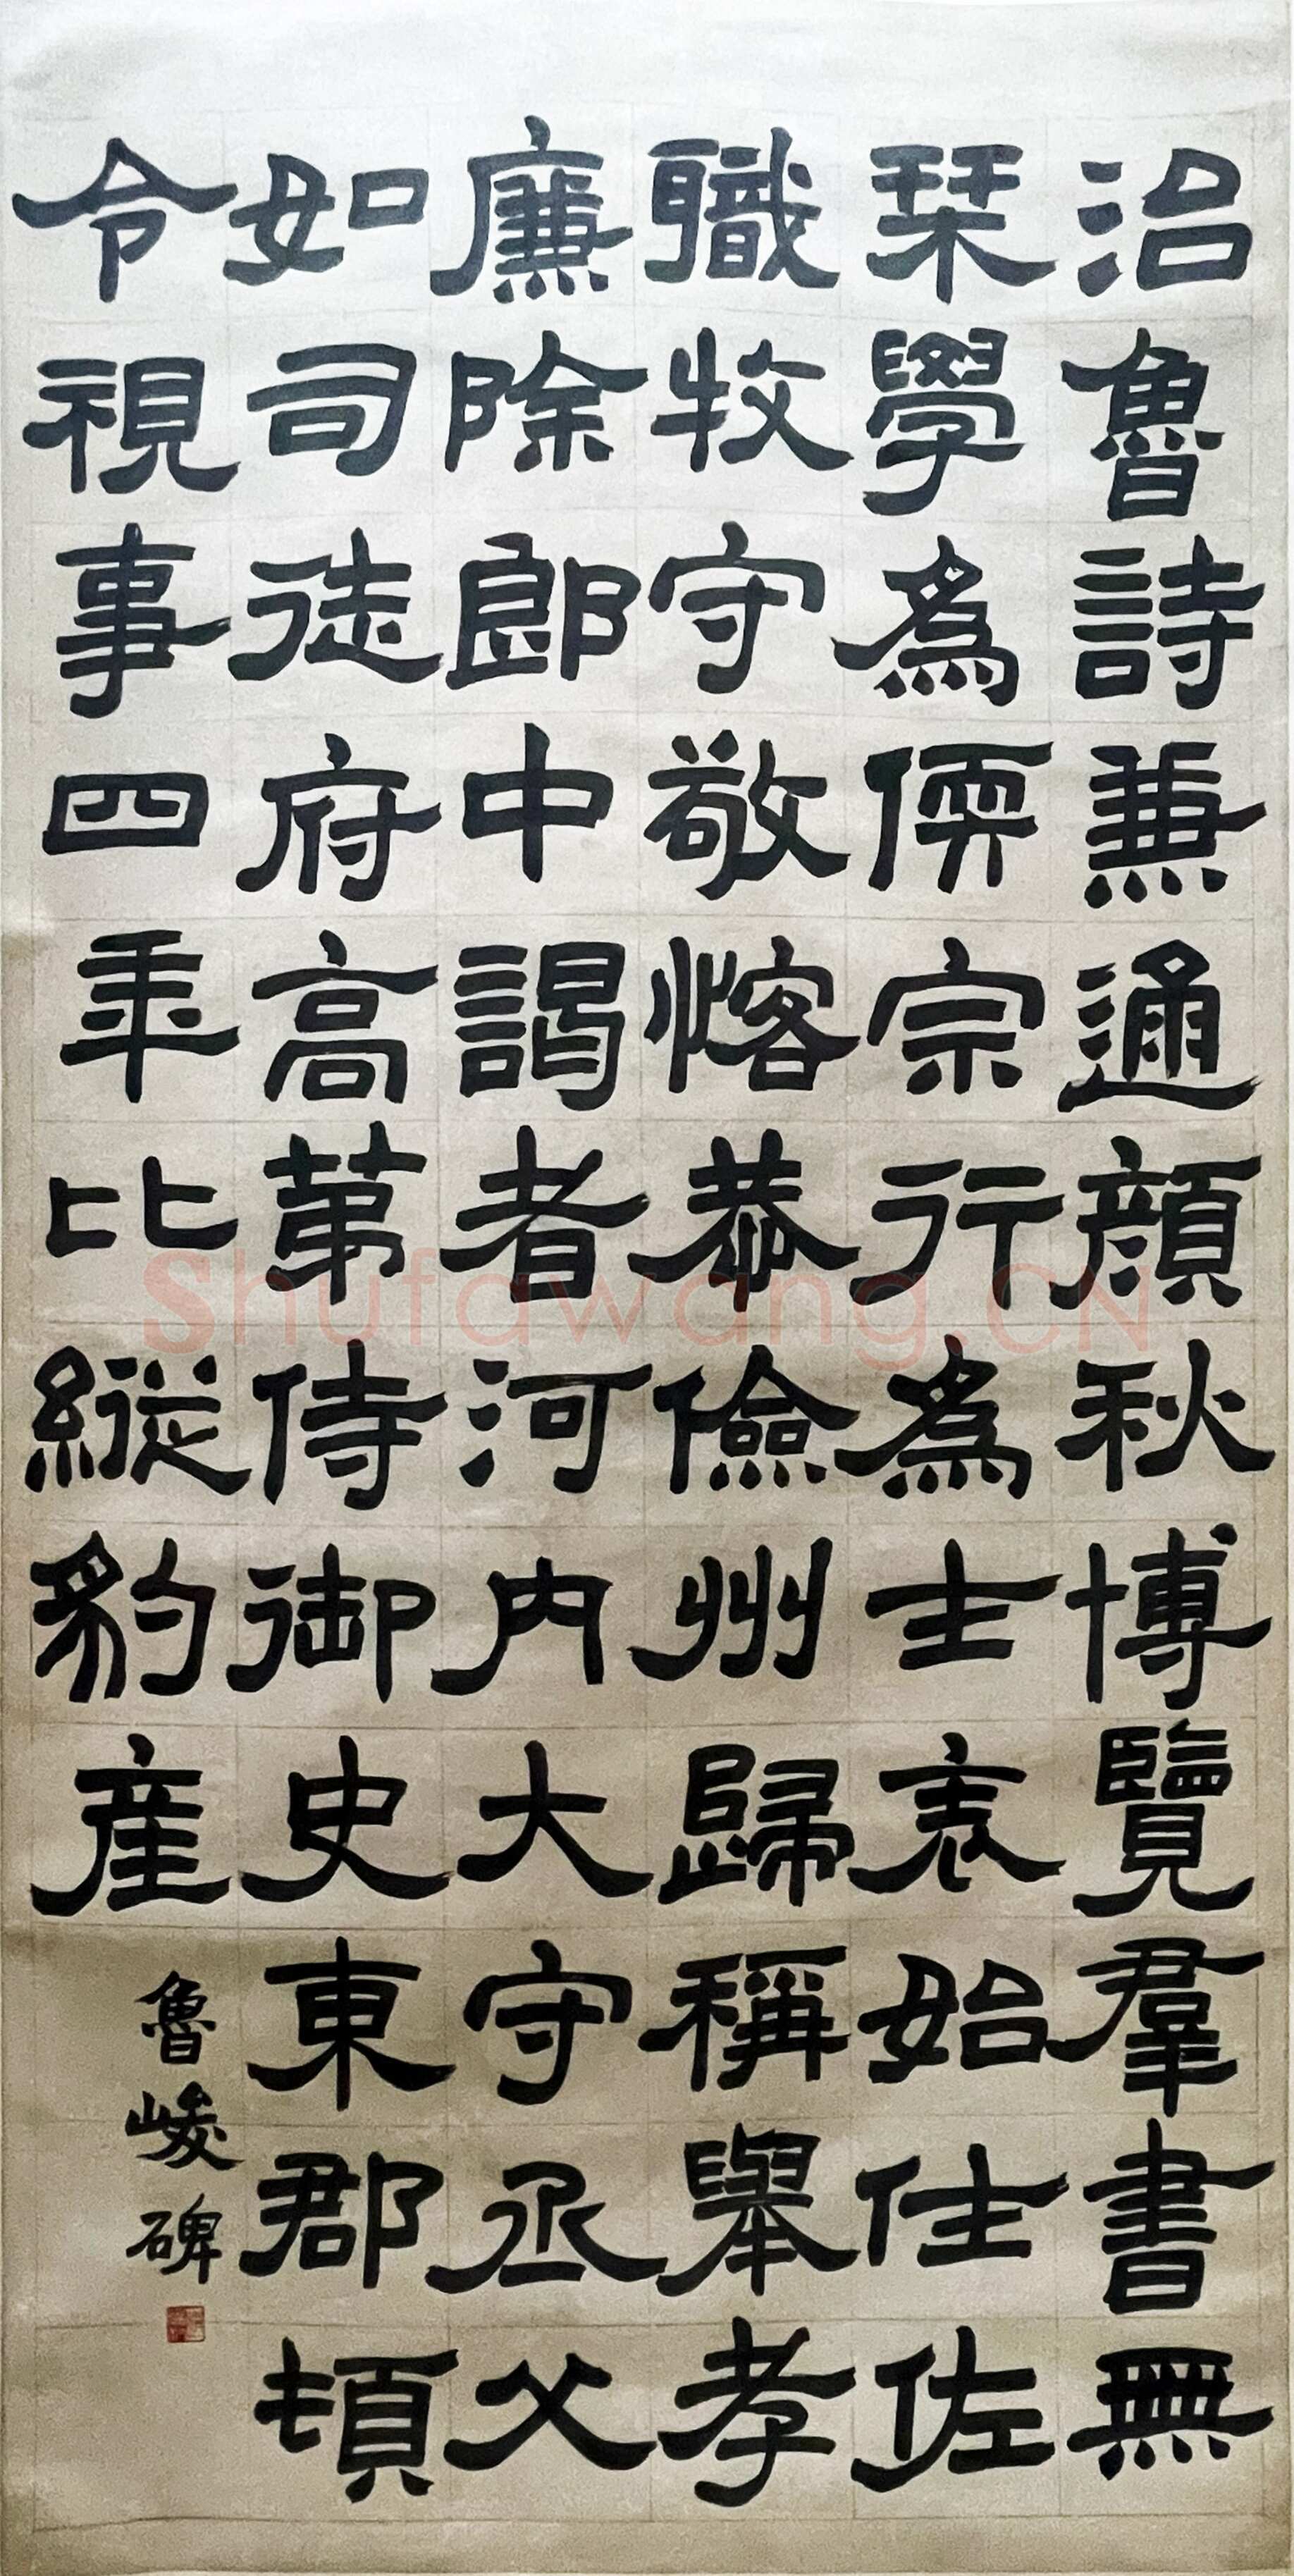 治魯詩兼通顏秋博覽羣書無
栞學為偄宗行為士表始仕佐
職牧守敬愘恭儉州歸稱舉孝
廉除郎中謁者河內大守丞父
如司徒府高苐侍御史東郡頓
令視事四年比縱豹產
魯峻碑
Shufawang.CN